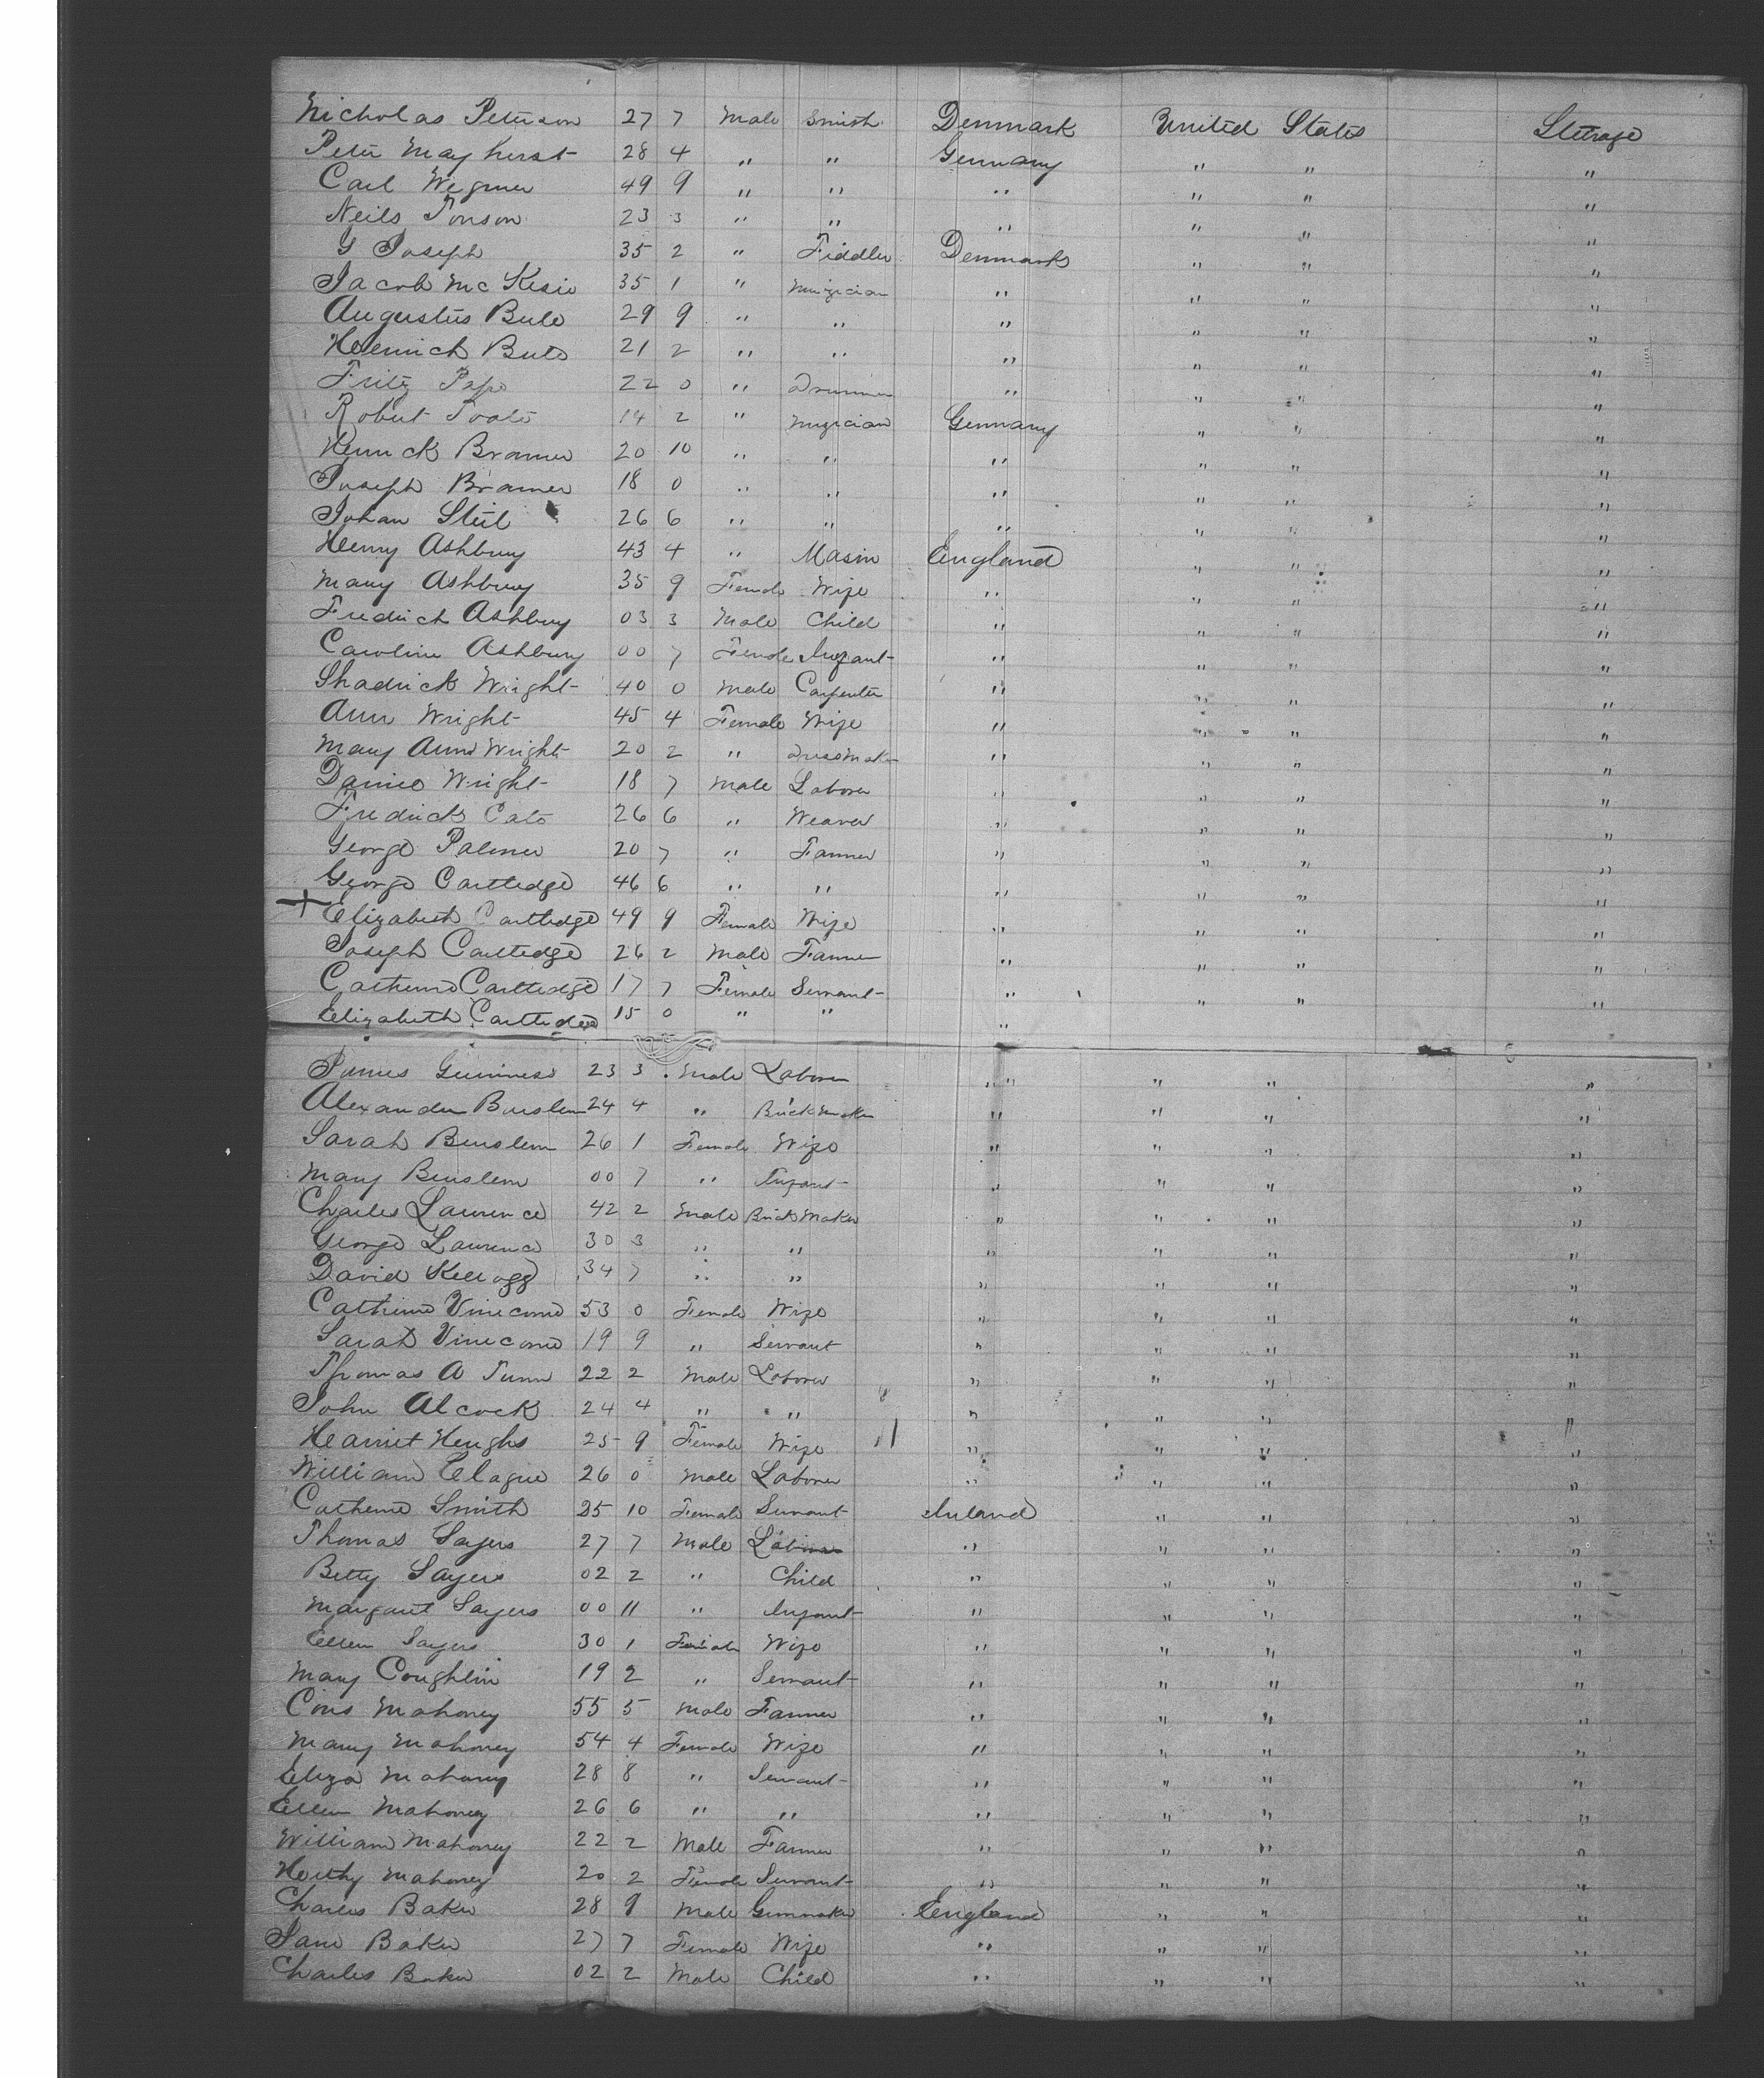 Nicholas Peterson 27 7 Male Smith Denmark United States Steerage
Peter Mayhurst 28 4 " " Germany " " "
Carl Wegner 49 9 " " " " " "
Neils Ponson 23 3 " " " " " "
G Joseph 35 2 " Fiddler Denmark " " "
Jacob Mc Kesie 35 1 " Muzician " " " "
Augustus Bule 29 9 " " " " " "
Heenrich Buts 21 2 " " " " " "
Fritz Pape 22 0 " Drummer " " " "
Robert 14 2 " Muzician Germany " " "
Henrick Bramer 20 10 " " " " " "
Joseph Bramer 18 0 " " " " " "
Johan Steil 26 6 " " " " " "
Henry Ashbury 43 4 " Masin England " " "
Mary Ashbury 35 9 Female Wife " " " "
Fredrick Ashbury 03 3 Male Child " " " "
Caroline Ashbury 00 7 Female Infant " " " "
Shadrick Wright 40 0 Male Carpenter " " " "
Ann Wright 45 4 Female Wife " " " "
Mary Ann Wright 20 2 " Dressmaker " " " "
Daniel Wright 18 7 Male Laborer " " " "
Fredrick Cato 26 6 " Weaver " " " "
George Palmer 20 7 " Farmer " " " "
George Cartledge 46 6 " " " " " "
+ Elizabeth Cartledge 49 9 Female Wife " " " "
Joseph Cartledge 26 2 Male Farmer " " " "
Catherine Cartledge 17 7 Female Servant " " " "
Elizabeth Cartledge 15 0 " " "
James Guinness 23 3 Male Laborer " " " "
Alexander Burslem 24 4 " Brickmaker " " " "
Sarah Burslem 26 1 Female Wife " " " "
Mary Burslem 00 7 " Infant " " " "
Charles Laurence 42 2 Male Brick Maker " " " "
George Laurence 30 3 " " " " " "
David Kellogg 34 7 " " " " " "
Catherine Vinecome 53 0 Female Wife " " " "
Sarah Vinecome 19 9 " Servant " " " "
Thomas A Tunn 22 2 Male Laborer " " " "
John Alcock 24 4 " " " " " "
Hearriet Heughs 25 9 Female Wife " " " "
William Clague 26 0 Male Laborer " " " "
Catherine Smith 25 10 Female Servant Ireland " " "
Thomas Sayers 27 7 Male Laborer " " " "
Betty Sayers 02 2 " Child " " " "
Margaret Sayers 00 11 " Infant " " " "
Ellen Sayers 30 1 Female Wife " " " "
Mary Coughlin 19 2 " Servant " " " "
Cons Mahoney 55 5 Male Farmer " " " "
Mary Mahoney 54 4 Female Wife " " " "
Eliza Mahony 28 8 " Servant " " " "
Ellen Mahoney 26 6 " " " " " "
William Mahoney 22 2 Male Farmer " " " "
Hetty Mahoney 20 2 Female Servant " " " "
Charles Baker 28 9 Male Gunmaker England " " "
Jane Baker 27 7 Female Wife " " " "
Charles Baker 02 2 Male Child " " " "